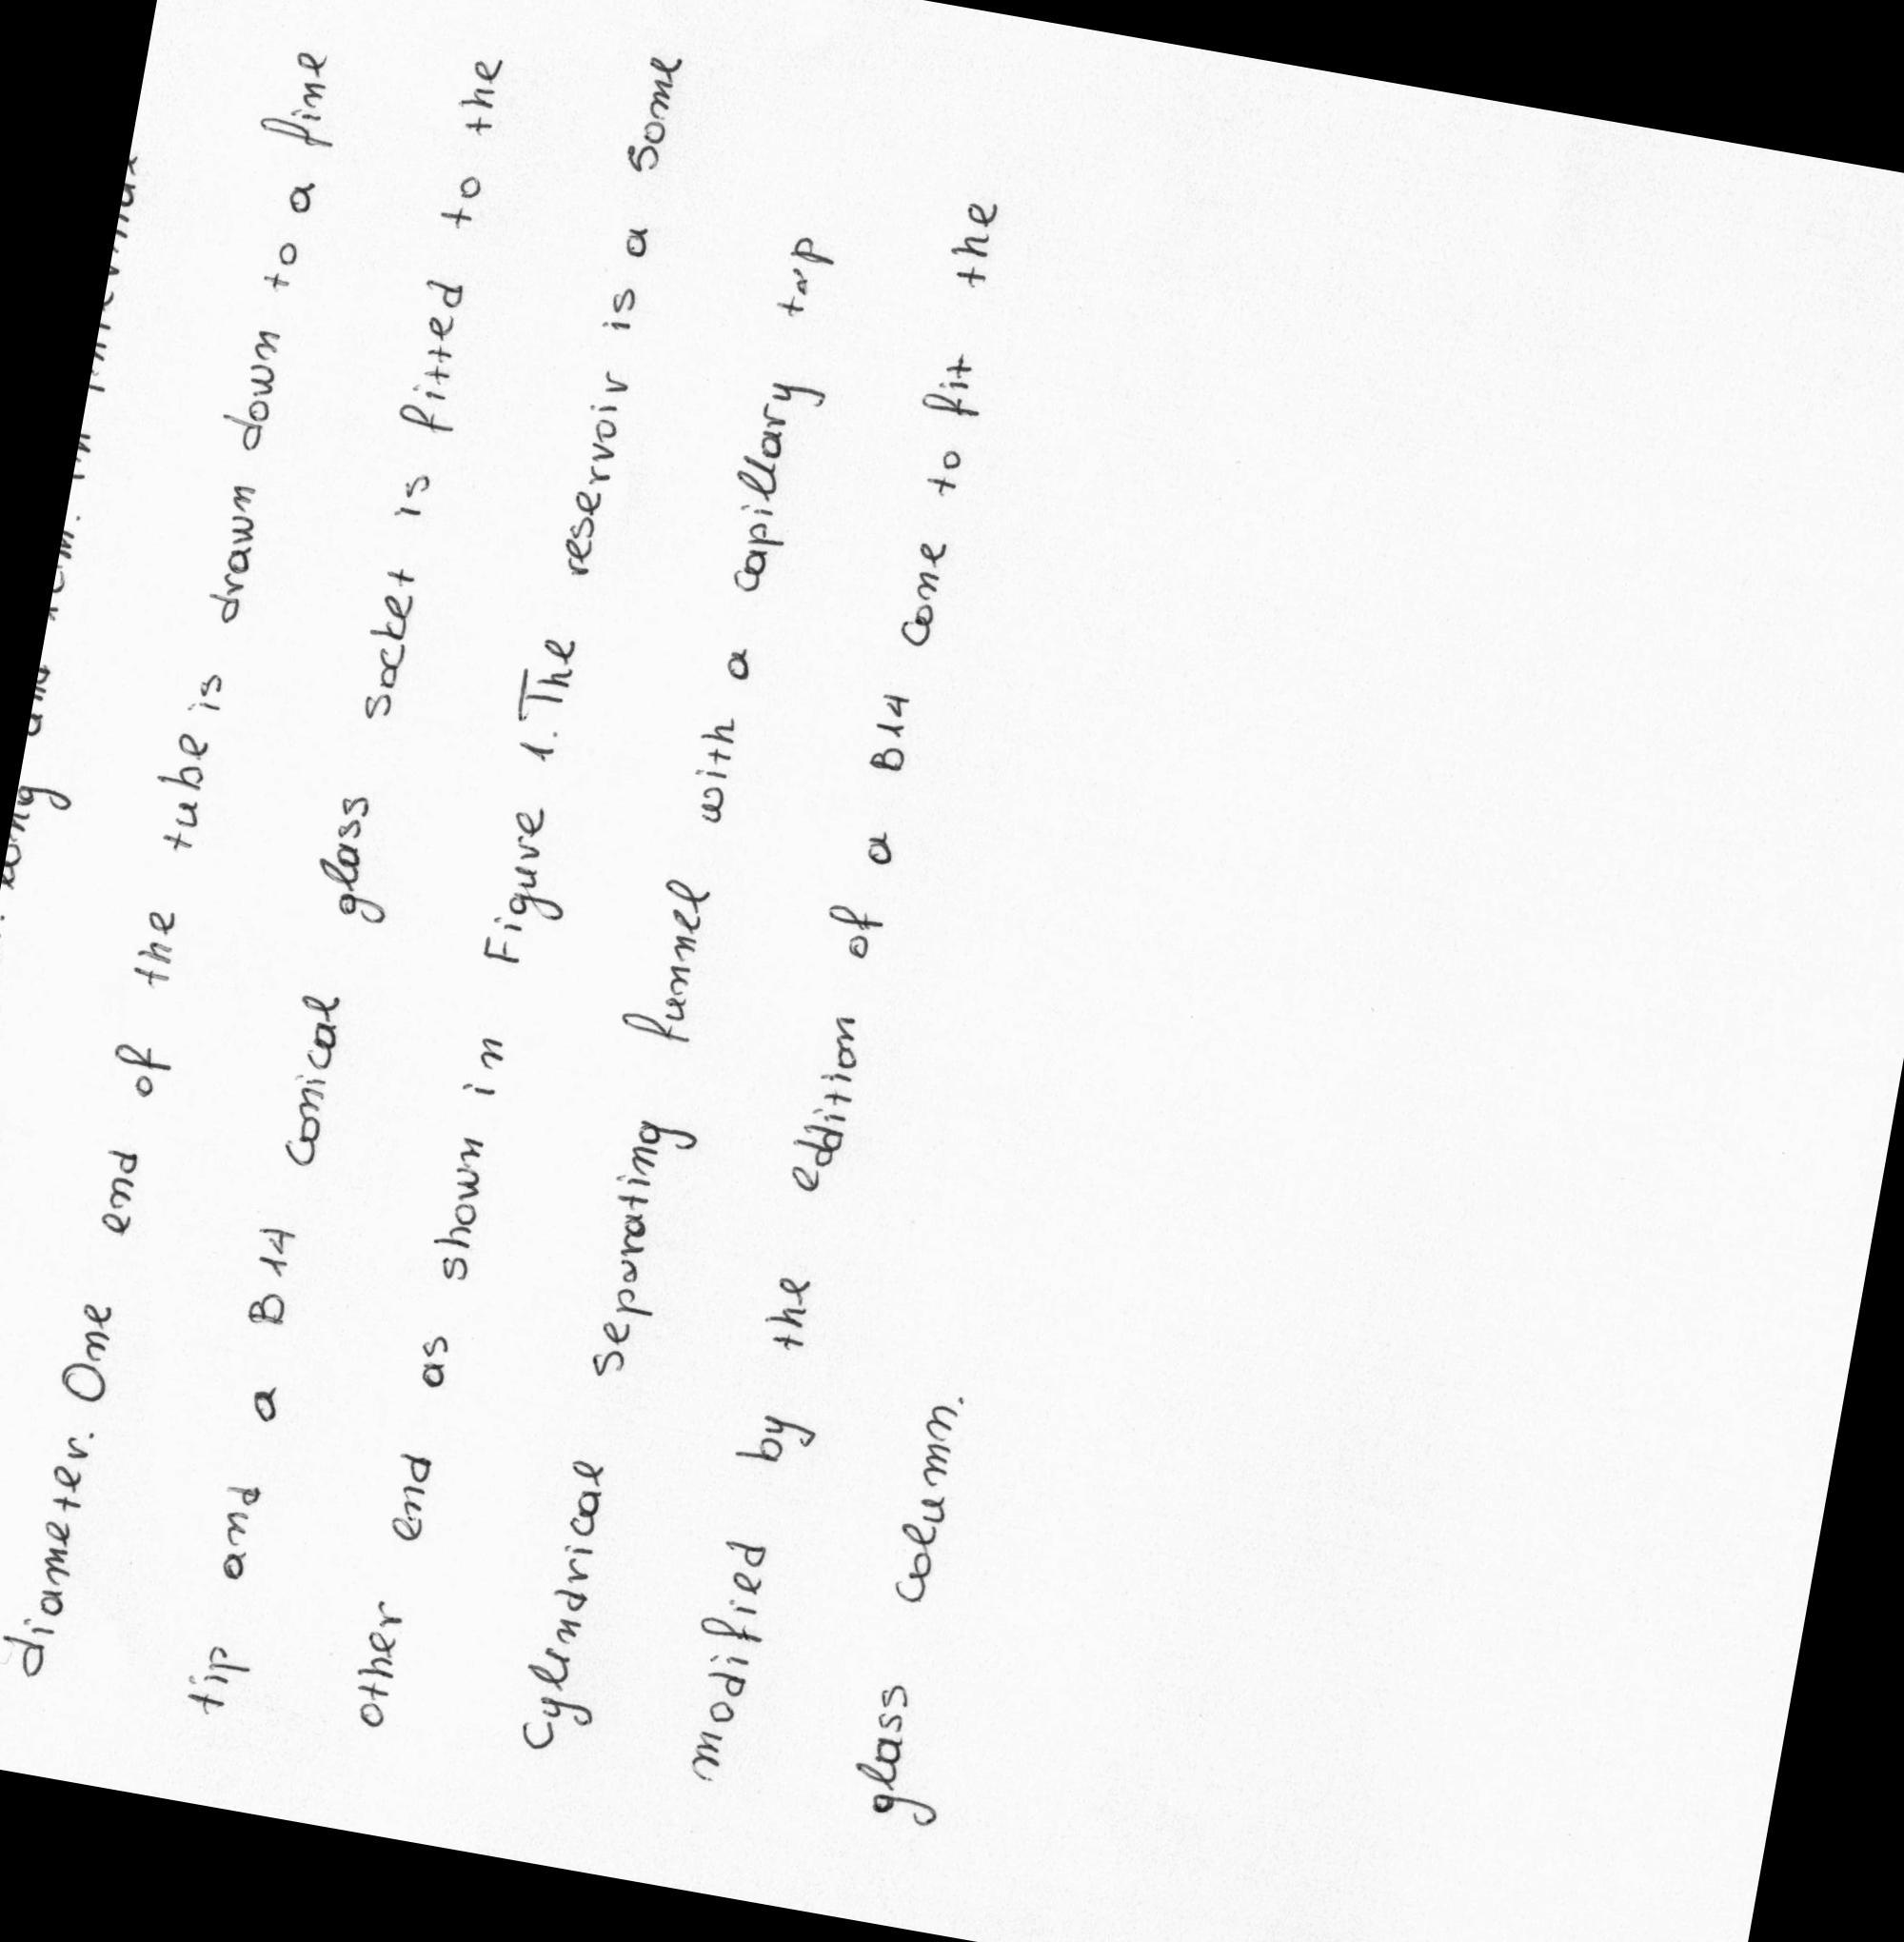 long and
diameter. One end of the tube is drawn down to a fine
tip and a B14 conical glass socket is fitted to the
other end as shown in Figure 1. The reservoir is a some
Cylindrical separating funnel with a capillary tap
modified by the eddition of a B14 cone to fit the
glass column.